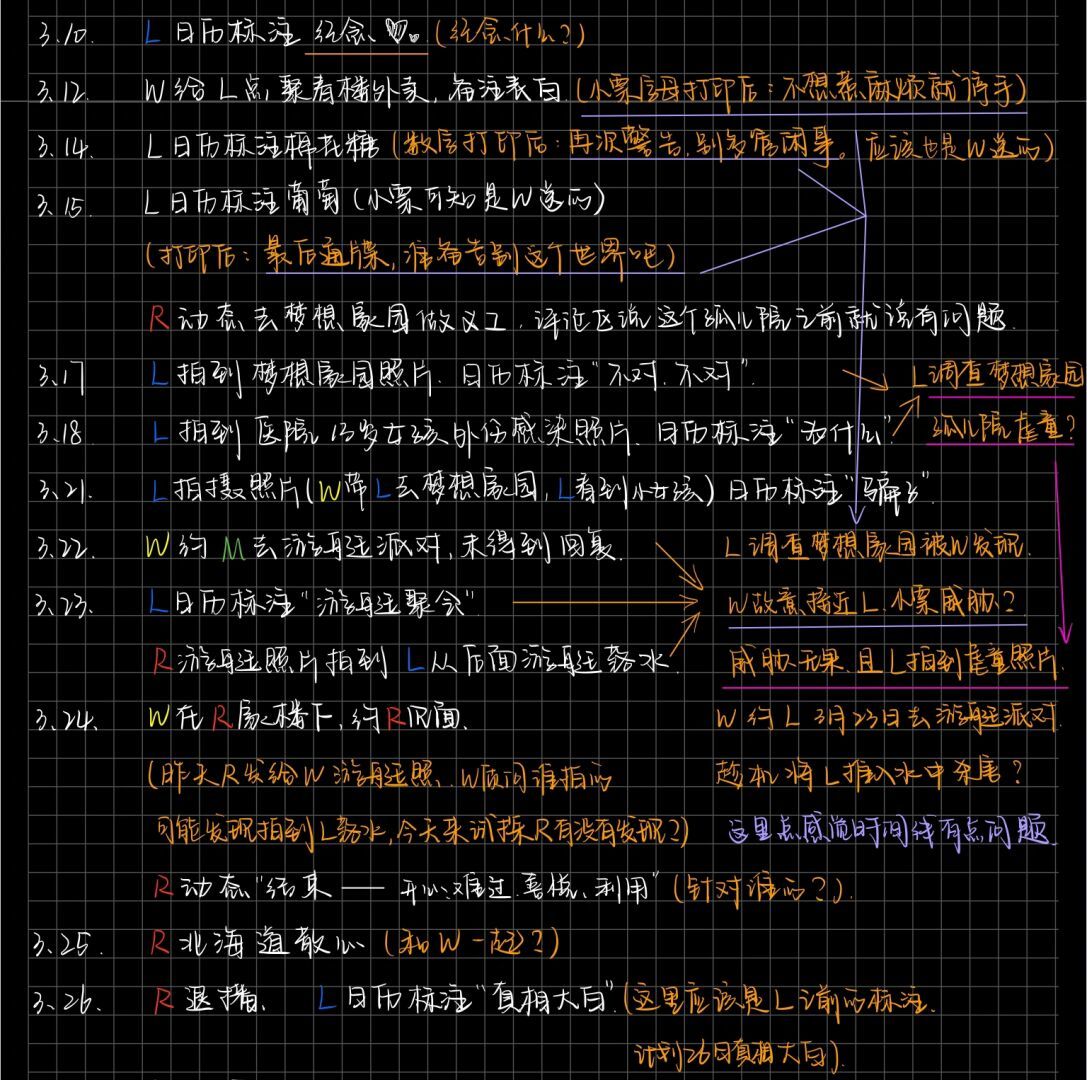 3.10. L 日历标注 纪念♡。(纪念什么?)
3.12. W给L点聚春楼外卖,备注表白(小票字母打印后:不想惹麻烦就停手)
3.14. L日历标注棉花糖(数字打印后:再次警告,别多管闲事。应该也是W送的)
3.15. L日历标注葡萄(小票可知是W送的)
(打印后:最后通牒,准备告别这个世界吧)
R动态去梦想家园做义工,评论区说这个孤儿院之前就说有问题.
3.17 L拍到梦想家园照片.日历标注"不对.不对". L调查梦想家园
3.18. L拍到医院13岁女孩外伤感染照片、日历标注"为什么" 孤儿院虐童?
3.21. L拍摄照片(W带L去梦想家园,L看到小女孩)日历标注"骗子".
3.22. W约M去游艇派对,未得到回复. L调查梦想家园被W发现.
3.23. L日历标注"游艇聚会". W故意接近L.小票威胁?
R游艇照片拍到L从后面游艇落水. 威胁无果.且L拍到虐童照片.
3.24. W在R家楼下,约R见面. W约L 3月23日去游艇派对.
(昨天R发给W游艇照.W质问谁拍的 趁机将L推入水中杀害?
可能发现拍到L落水,今天来试探R有没有发现?) 这里点感觉时间线有点问题.
R动态"结束——开心.难过.喜悦、利用"(针对谁的?).
3.25. R北海道散心(和W一起?)
3.26. R退播. L日历标注"真相大白".(这里应该是L之前的标注.
计划26日真相大白).